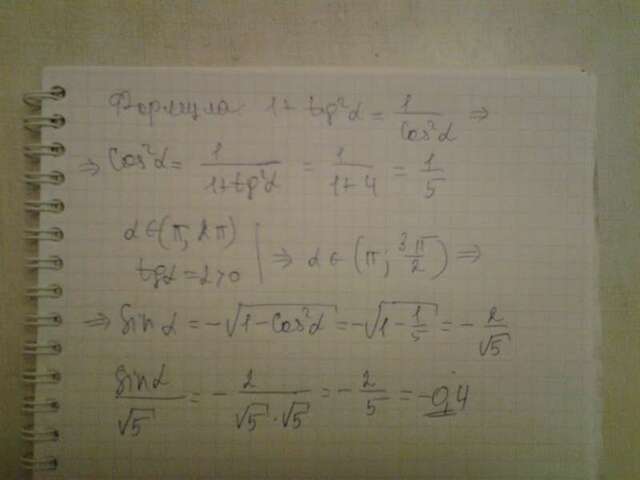 Формула: 1 + tg²α = 1/cos²α ⇒
⇒ cos²α = 1/(1+tg²α) = 1/(1+4) = 1/5
α ∈ (π; 2π)
tgα = 2 > 0 | ⇒ α ∈ (π; 3π/2) ⇒
⇒ sin α = -√(1-cos²α) = -√(1-1/5) = -2/√5
sinα/√5 = -2/(√5·√5) = -2/5 = -0,4